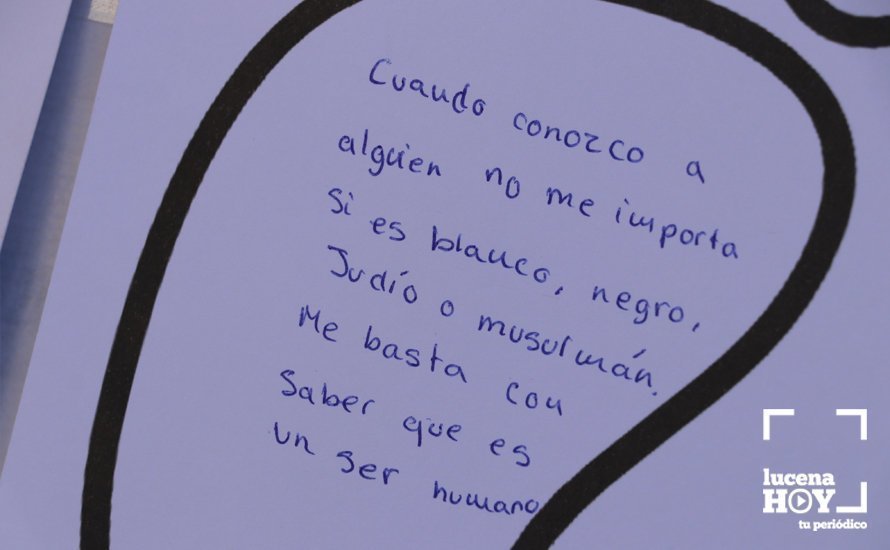 Cuando conozco a
alguien no me importa
si es blanco, negro,
Judío o musulmán.
Me basta con
saber que es
un ser humano
lucena
HOY
tu periódico